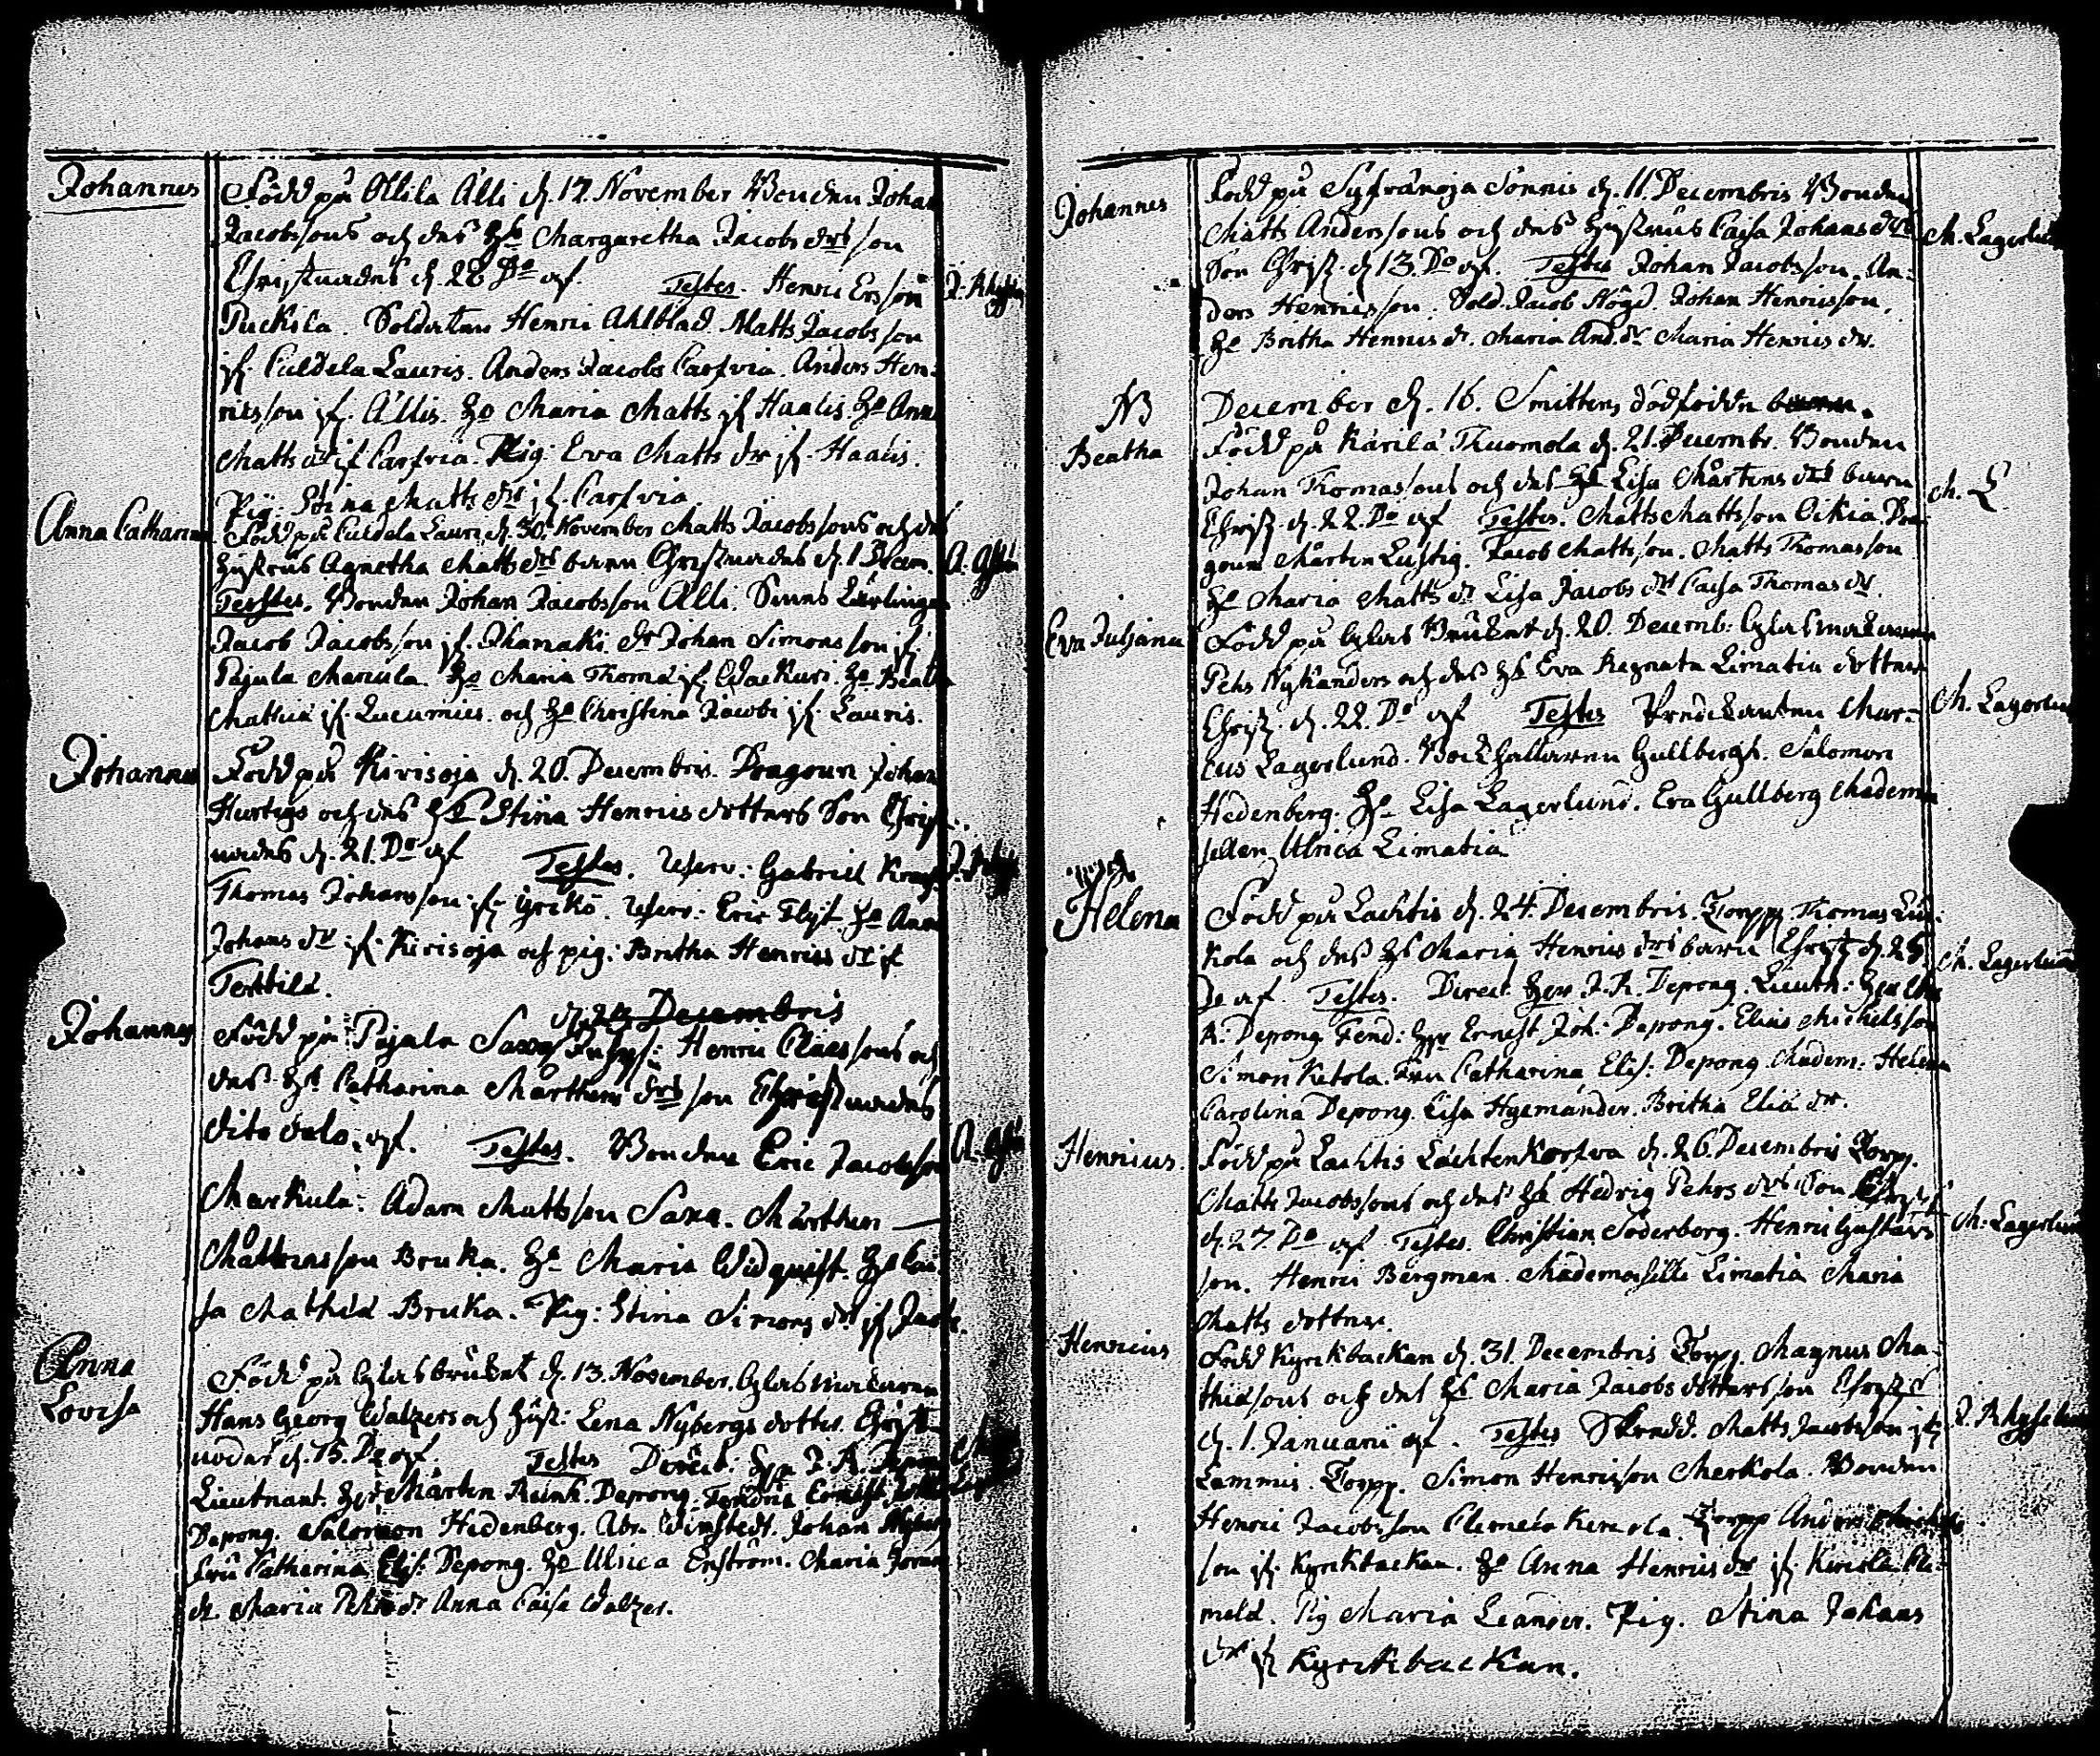 Johannes
Född på Ollila Alli d. 17. November Bonden Johan
Jacobssons och des H:s Margaretha Jacobs drs son
Christnades d. 28 D:o af. Testes. Henric Ersson
Puckila. Soldaten Henric Ahlblad. Matts Jacobsson
if. Culdela Lauris. Anders Jacobs Carsvia. Anders Hen-
ricsson if. Allis. H:o Maria Matts if Haalis. H:o Anna
Matts dr if Carsvia. Pig: Eva Matts dr if. Haalis.
Pig: Stina Matts dr if. Carsvia.
Anna Catharina
Född på Culdela Lauri d. 30. November Matts Jacobssons och des
hustrus Agnetha Matts drs barn Christnades d. 1 Decem.
Testes. Bonden Johan Jacobsson Alli.
Jacob Jacobsson if. Johan Simonsson if
Pajula Marcula. H:o Maria Thomæ if H:o Beata
Matthiæ if. och H:o Christina Jacobi if. Lauris.
Johannes
Född på Kirisoja d. 20. Decembris. Dragoun Johan
Hurtigs och des H:s Stina Henrics dotters Son Christ-
nades d. 21. D:o af Testes. Reserv: Gabriel
Thomas Johansson if Yrckö. Reserv. Eric Flyt. H:o Anna
Johans dr if. Kirisoja och pig: Britha Henrics dr if
Terttilä.
d. 24 Decembris
Johannes
Född på Pajula Saxa Henric Claessons och
des H:s Catharina Mårthens drs son Christnades
dito dato af. Testes. Bonden Eric Jacobsson
Markula. Adam Mattsson Saxa. Mårthen
Mårtensson Bruka. H:o Maria Widquist. H:o Cai-
sa Mathiæ Bruka. Pig: Stina Simons dr if
Anna
Lovisa
Född på Glasbruket d. 13. November. Glasmakaren
Hans Georg Walzers och Hust: Lena Nybergs dotter. Christ-
nades d. 15. D:o af. Testes Direct: Herr J. R. Depong
Lieutnant. Herr Mårten Reinh. Depong. Fendric Ernest
Depong. Salomon Hedenberg. Abr. Winstedt. Johan Nyberg
Fru Catharina Elis: Depong. H:o Ulrica Enström. Maria
dr. Maria Pehrs dr Anna Caisa Walzer.
Johannes
Född på Syfränoja Sonnis d. 11. Decembris Bonden
Matts Anderssons och des Hustrus Caisa Johans drs
Son Christ. d. 13. D:o af. Testes Johan Jacobsson. An-
ders Henricsson. Sold. Jacob Högd. Johan Henricsson.
H:o Britha Henrics dr. Maria And. dr Maria Henrics dr.
M. Lagerlund
NB
December d. 16. Smittens dödfödda barn.
Beatha
Född på Kärilä Thuomola d. 21. Decembr. Bonden
Johan Thomassons och des H:s Lisa Mårtens drs barn
Christ. d. 22. D:o af Testes. Matts Mattsson Oikia Dra-
goun Mårten Lustig. Jacob Mattsson. Matts Thomasson
H:o Maria Matts dr Lisa Jacobs dr Caisa Thomas dr.
M. L
Eva Juliana
Född på Glas Bruket d. 20. Decemb. Glasmakaren
Pehr Nykanders och des H:s Eva Regnata Limatia dotter
Christ. d. 22. D:o af Testes Predikanten Mar-
cus Lagerlund. Bockhallaren Gullbergh. Salomon
Hedenberg. H:o Lisa Lagerlund. Eva Gullberg Madema
sellen Ulrica Limatia
M. Lagerlund
Helena
Född på Lachtis d. 24. Decembris. Torpp Thomas
kola och des H:s Maria Henrics drs barn Christ d. 25
D:o af. Testes. Direct. Herr J. R. Depong. Lieutn: Herr
R: Depong Fend: Herr Ernest Joh: Depong. Elias Michelsson
Simon Ketola. Fru Catharina Elis: Depong Madem: Helena
Carolina Depong. Lisa Hyemander. Britha Eliæ dr.
M. Lagerlund
Henricus.
Född på Lachtis Lächtenkorsva d. 26. Decembris Torp.
Matts Jacobssons och des H:s Hedvig Pehrs drs Son Christ
d. 27. D:o af Testes. Christian Söderborg. Henric Gustavs
son. Henric Bergman. Mademoiselle Limatia Maria
Matts dotter.
M. Lagerlund
Henricus
Född Kyrckbackan d. 31. Decembris Torp. Magnus Ma-
thiæsons och des H:s Maria Jacobs dotters son Christ
d. 1. Januarii af. Testes Skredd. Matts Jacobsson if
Lammis. Torpp. Simon Henricsson Merkola. Bonden
Henric Jacobsson Clemelä Kerola. Torpp Anders Michels
son if. Kyrckbackan. H:o Anna Henrics dr if. Kerola Cle-
melä. Pig Maria Leander. Pig. Stina Johans
dr if Kyrckbackan.